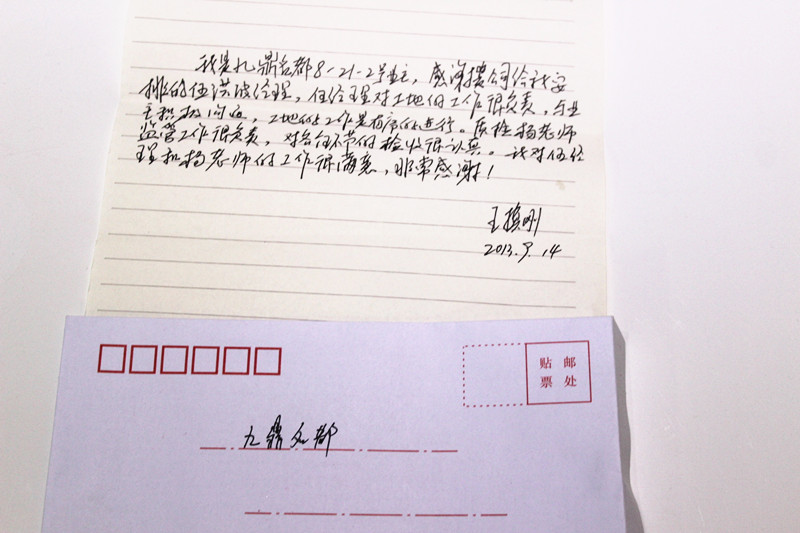 我是九鼎名都8-21-2号业主，感谢贵公司给我安
排的伍洪波经理，伍经理对工地的工作很负责，与业
主积极沟通，工地的工作是有序的进行。质检杨老师
监管工作很负责，对各个环节的检收很认真。我对伍经
理和杨老师的工作很满意，非常感谢！
王 刚
2013.9.14
贴 邮
票 处
九鼎名都